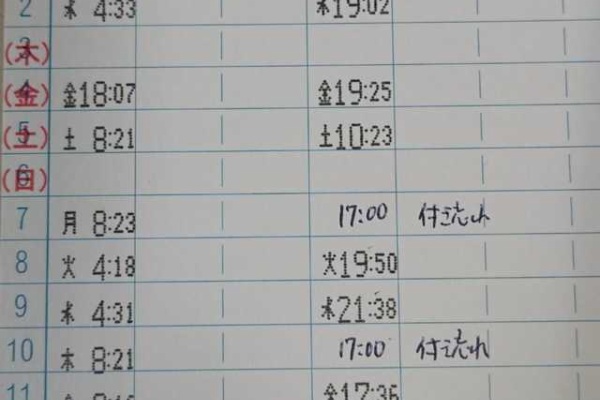 2 水 4:33 水19:02
3 (木)
4 (金) 金18:07 金19:25
5 (土) 土 8:21 土10:23
6 (日)
7 月 8:23 17:00 付忘れ
8 火 4:18 火19:50
9 水 4:31 水21:38
10 木 8:21 17:00 付忘れ
11 金17:36